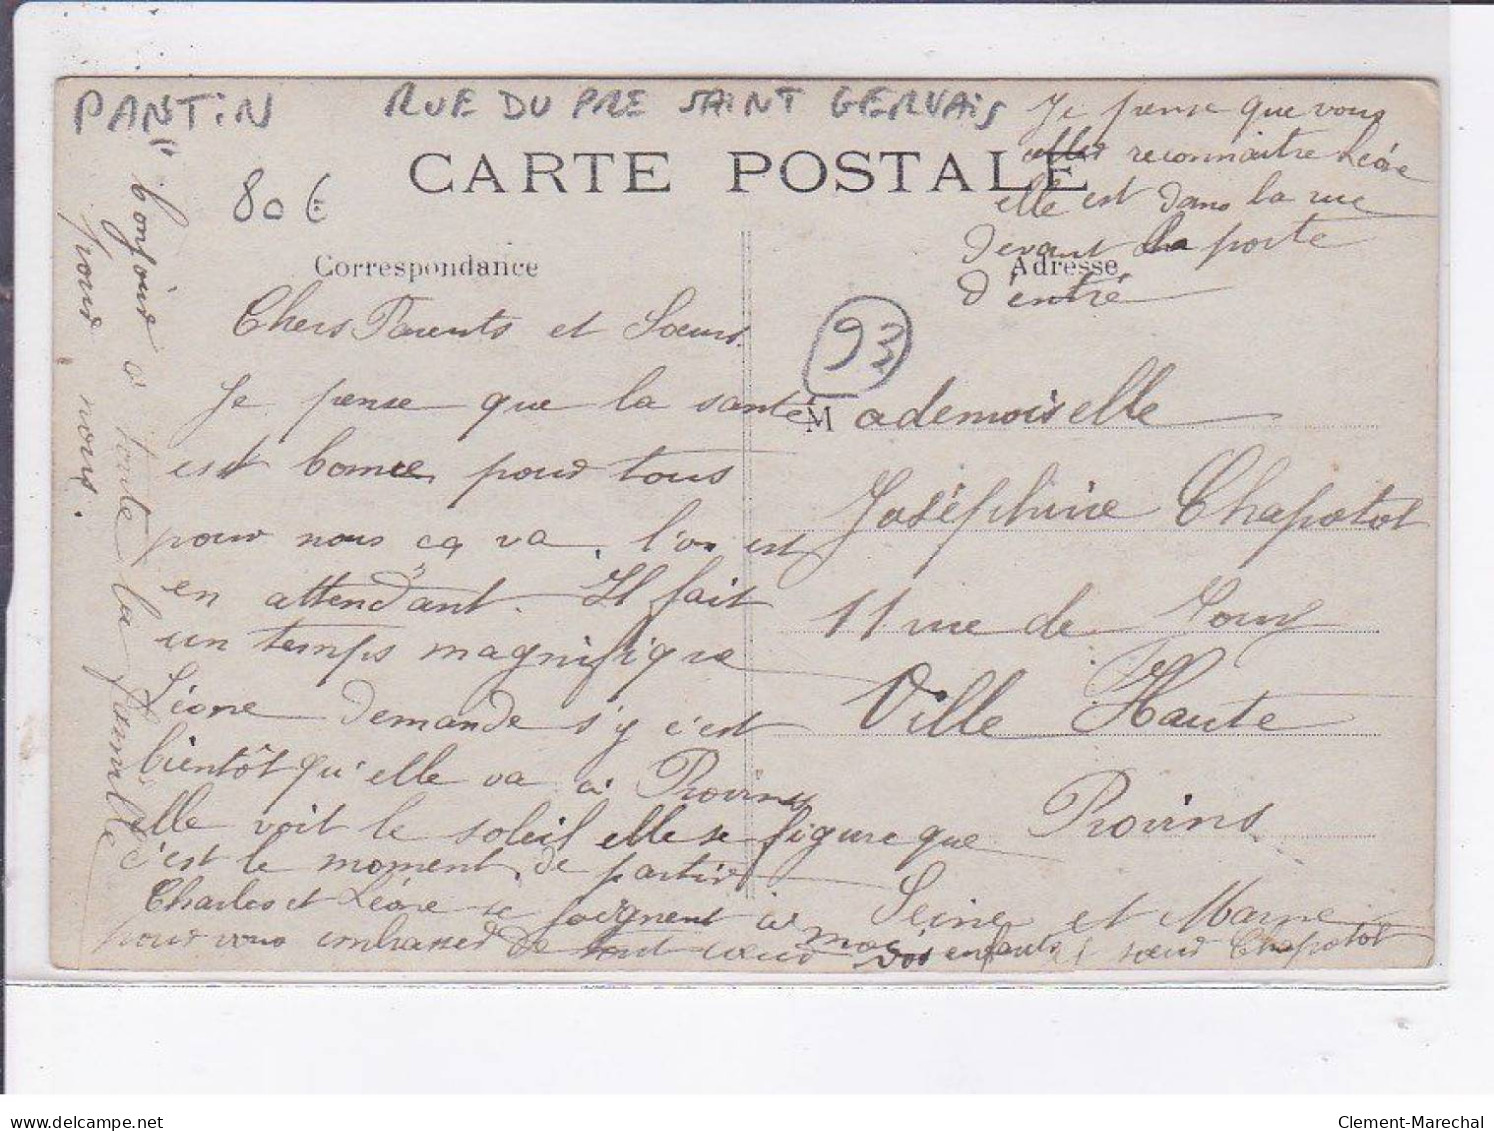 PANTiN RUE DU PRE SAINT GERVAIS
80 €
CARTE POSTALE
Je pense que vous
allez reconnaitre Léone
elle est dans la rue
devant la porte
d'entré
Correspondance
Adresse
93
Chers Parents et Soeurs.
Je pense que la santé
est bonne pour tous
pour nous ça va, l'on est
en attendant. Il fait
un temps magnifique
Léone demande s'y c'est
bientôt qu'elle va à Provins
elle voit le soleil elle se figure que
c'est le moment de partir
Charles et Léone se joignent à moi
pour vous embrasser de tout coeur vos enfants et soeur Chapotot
bonjour à toute la famille
pour nous.
Mademoiselle
Joséphine Chapotot
11 rue de Jouy
Ville Haute
Provins
Seine et Marne
delcampe.net
Clement-Marechal